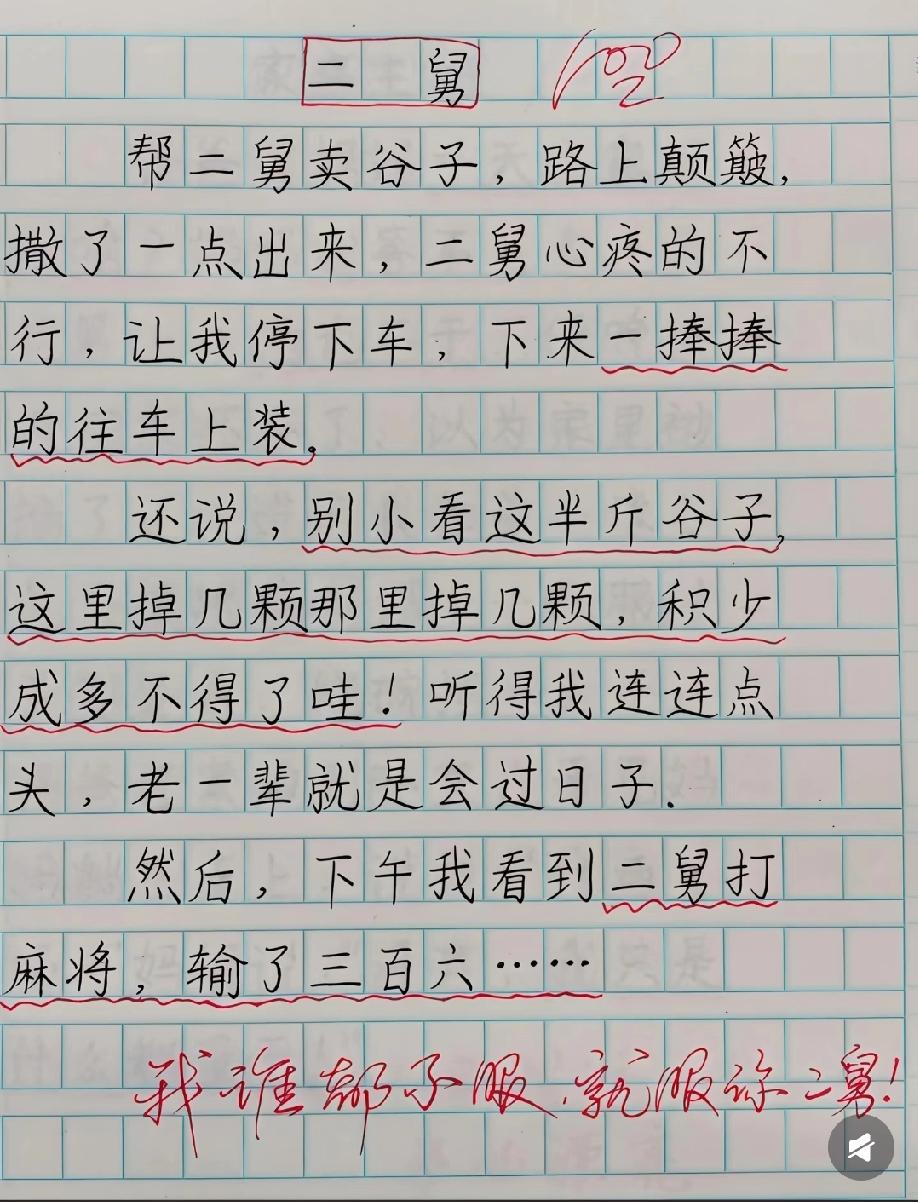 二舅 100
帮二舅卖谷子，路上颠簸，
撒了一点出来，二舅心疼的不
行，让我停下车，下来一捧捧
的往车上装。
还说，别小看这半斤谷子，
这里掉几颗那里掉几颗，积少
成多不得了哇！听得我连连点
头，老一辈就是会过日子.
然后，下午我看到二舅打
麻将，输了三百六……
我谁都不服，就服你二舅！